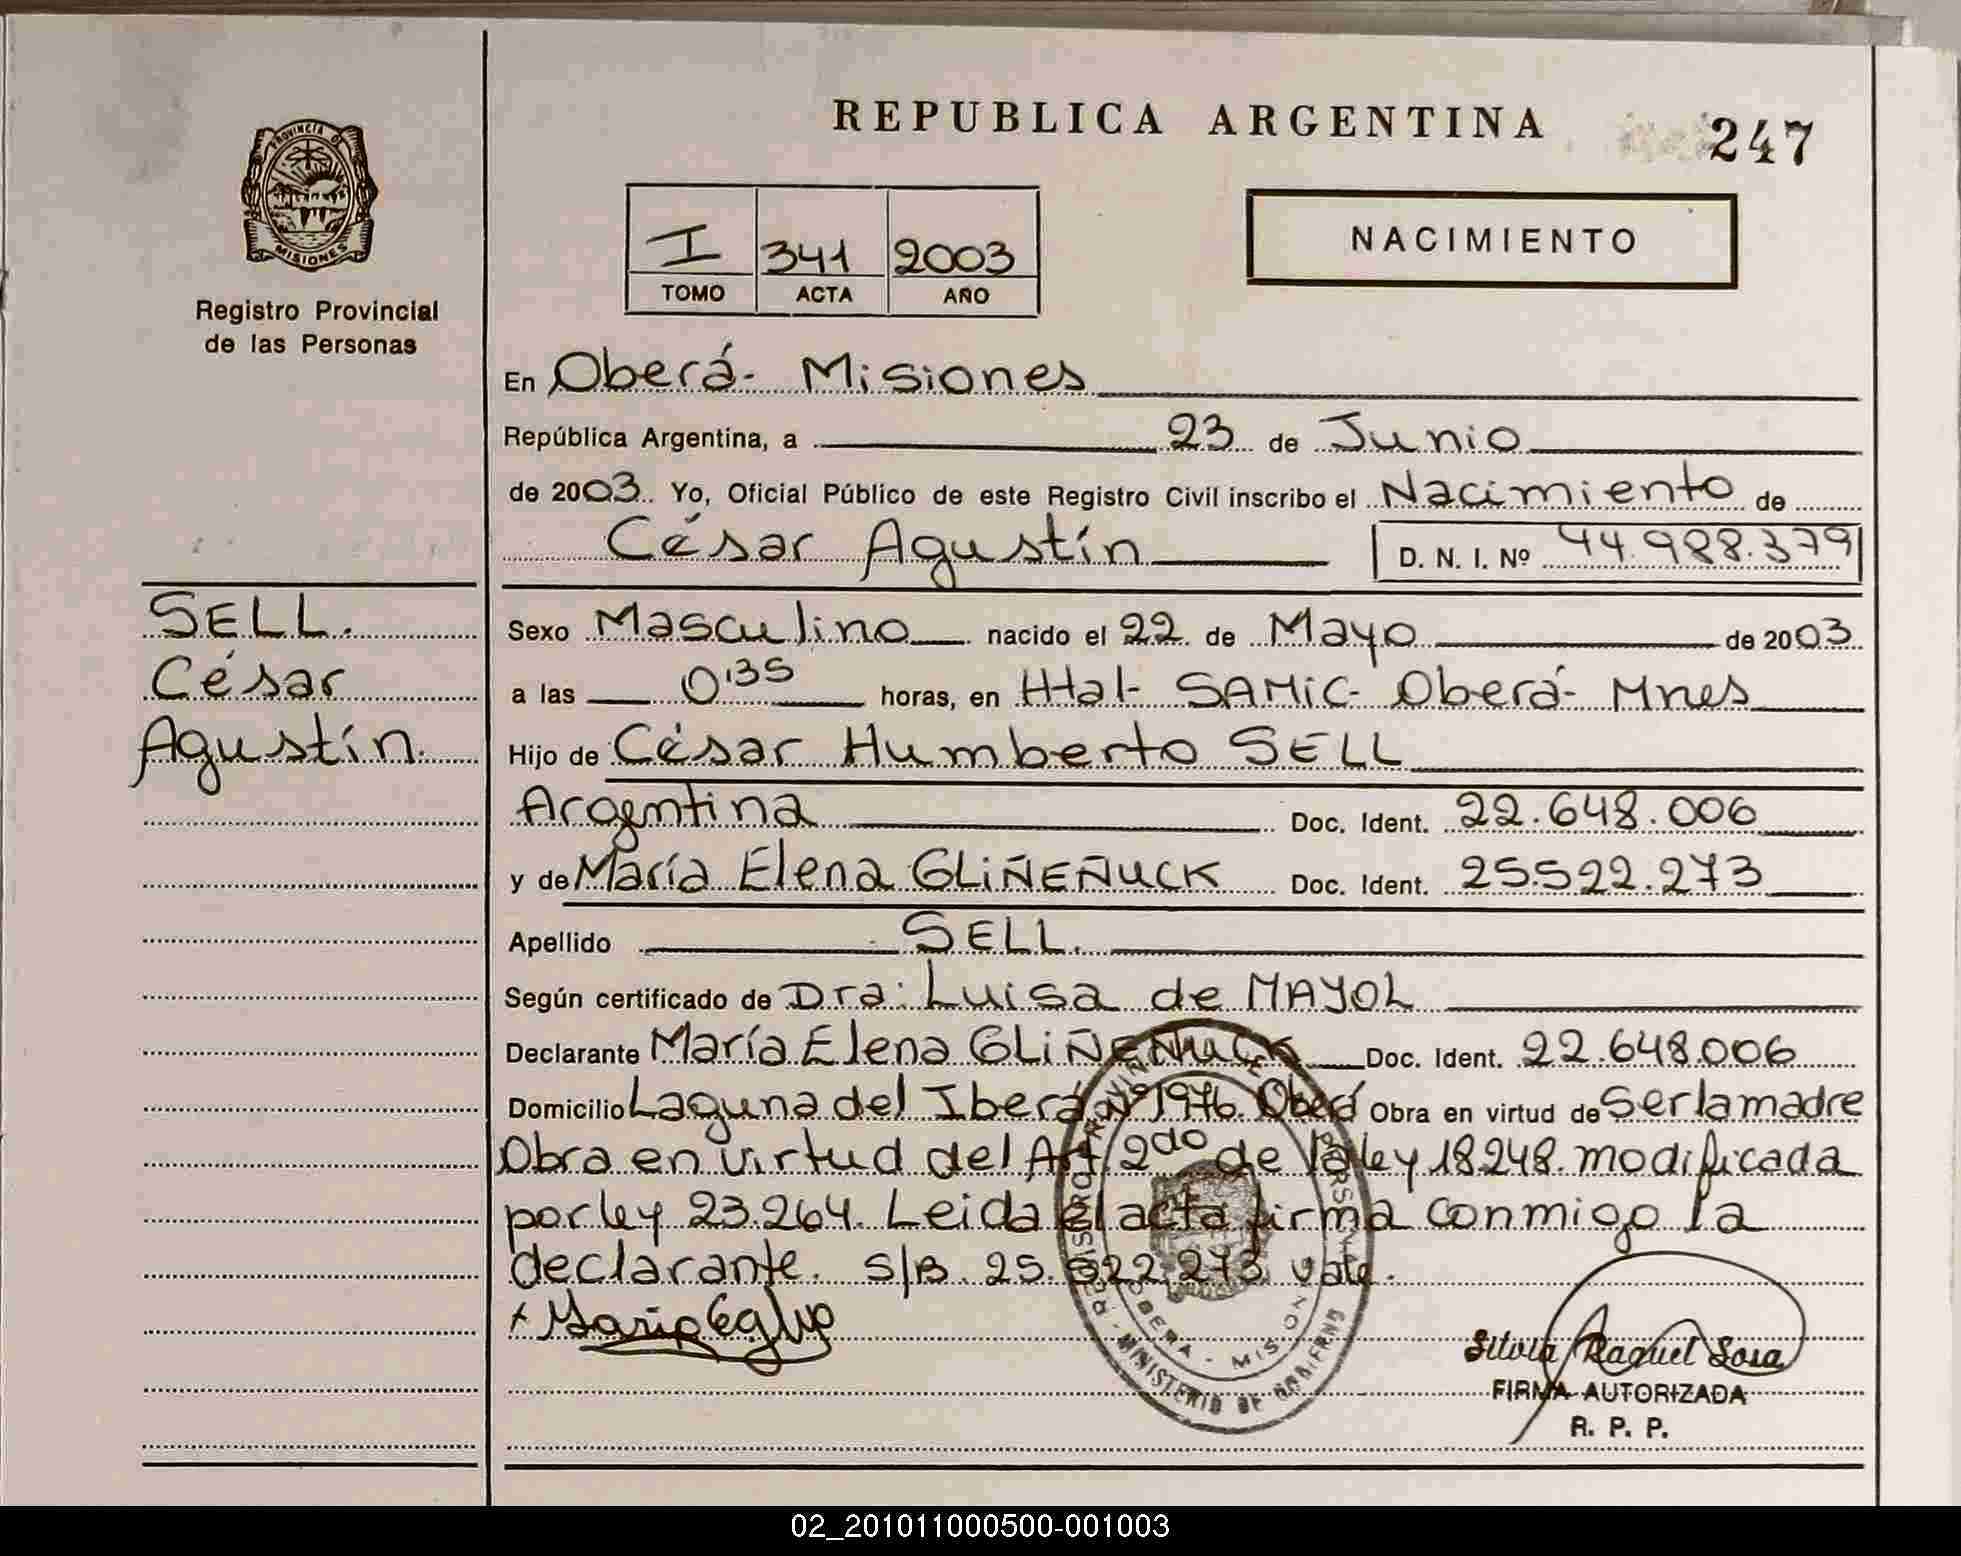 REPUBLICA ARGENTINA
247
PROVINCIA DE
MISIONES
Registro Provincial
de las Personas
I 341 2003
TOMO ACTA AÑO
NACIMIENTO
En Oberá - Misiones
República Argentina, a 23 de Junio
de 2003. Yo, Oficial Público de este Registro Civil inscribo el Nacimiento de
César Agustín D. N. I. Nº 44.988.379
SELL.
César
Agustín.
Sexo Masculino nacido el 22 de Mayo de 2003
a las 0'35 horas, en Htal- SAMIC- Oberá- Mnes
Hijo de César Humberto SELL
Argentina Doc. Ident. 22.648.006
y de María Elena GLIÑEÑUCK Doc. Ident. 25.522.273
Apellido SELL.
Según certificado de Dra: Luisa de MAYOL
Declarante María Elena GLIÑEÑUCK Doc. Ident. 22.648.006
Domicilio Laguna del Iberá Nº 1976. Oberá Obra en virtud de Ser la madre
Obra en virtud del Art. 2do de la ley 18.248. modificada
por ley 23.264. Leida el acta firma conmigo la
declarante. S/B. 25.522.273 vale.
OBERA - MISIONES
MINISTERIO DE GOBIERNO
Silvia Raquel Sosa
FIRMA AUTORIZADA
R. P. P.
02_201011000500-001003